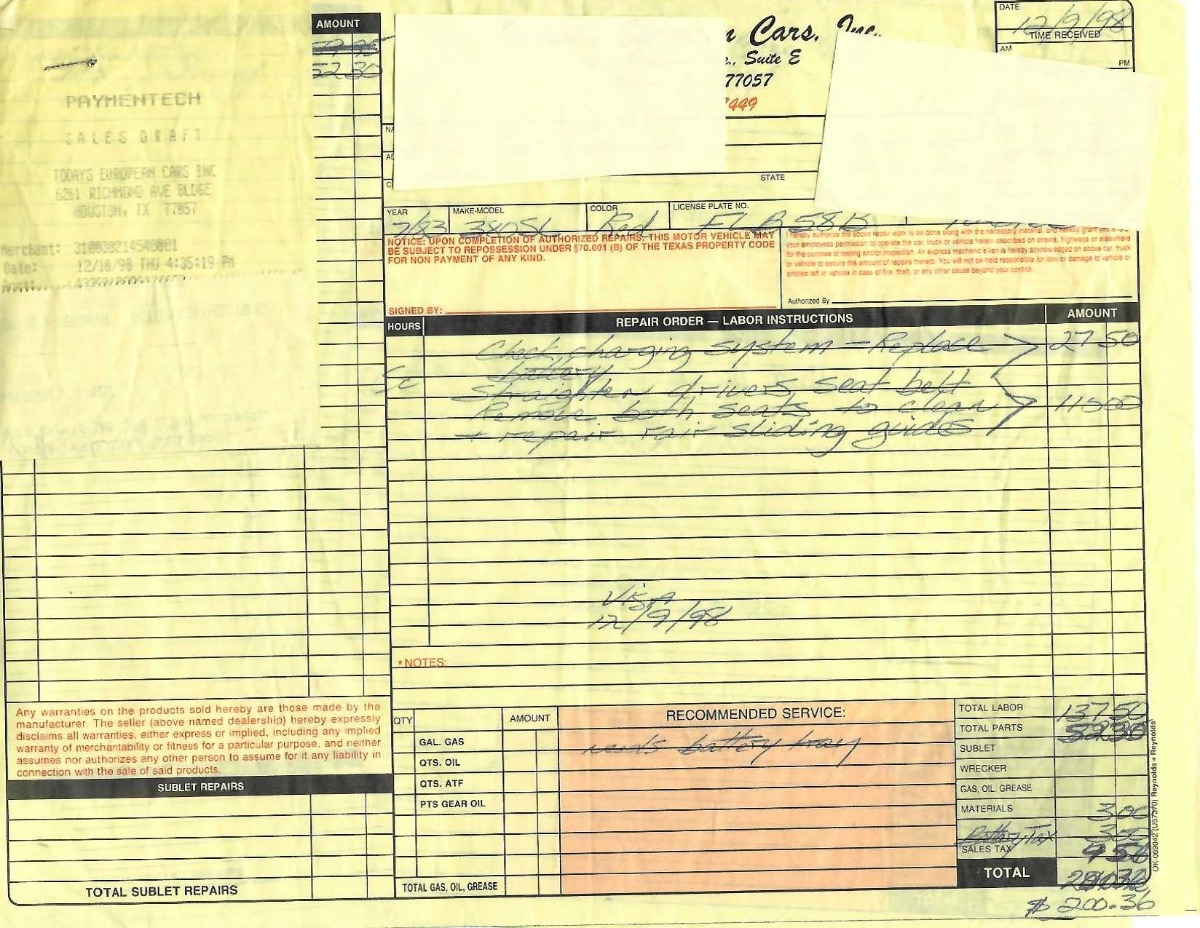 AMOUNT
52.30
PAYMENTECH
SALES DRAFT
TODAYS EUROPEAN CARS INC
6261 RICHMOND AVE BLDGE
HOUSTON, TX 77057
Merchant:
Date: 12/10/98 THU 4:35:19 PM
n Cars, Inc.
., Suite E
77057
DATE
12/9/98
TIME RECEIVED
AM
PM
STATE
YEAR MAKE-MODEL COLOR LICENSE PLATE NO.
380SL Red
NOTICE: UPON COMPLETION OF AUTHORIZED REPAIRS, THIS MOTOR VEHICLE MAY
BE SUBJECT TO REPOSSESSION UNDER §70.001 (B) OF THE TEXAS PROPERTY CODE
FOR NON PAYMENT OF ANY KIND.
SIGNED BY:
hereby authorize the above repair work to be done along with the necessary material, and hereby grant you
your employees permission to operate the car, truck or vehicle herein described on streets, highways or elsewhere
for the purpose of testing and/or inspection. An express mechanic's lien is hereby acknowledged on above car, truck
or vehicle to secure the amount of repairs thereto. You will not be held responsible for loss or damage to vehicle or
articles left in vehicle in case of fire, theft, or any other cause beyond your control.
Authorized By
HOURS REPAIR ORDER — LABOR INSTRUCTIONS AMOUNT
Check charging system - Replace 27 50
battery
Straighten drivers seat belt
Remove both seats to clean 115 00
+ repair rair sliding guides
VISA
12/9/98
*NOTES:
Any warranties on the products sold hereby are those made by the
manufacturer. The seller (above named dealership) hereby expressly
disclaims all warranties, either express or implied, including any implied
warranty of merchantability or fitness for a particular purpose, and neither
assumes nor authorizes any other person to assume for it any liability in
connection with the sale of said products.
SUBLET REPAIRS
TOTAL SUBLET REPAIRS
QTY AMOUNT
GAL. GAS
QTS. OIL
QTS. ATF
PTS GEAR OIL
TOTAL GAS, OIL, GREASE
RECOMMENDED SERVICE:
needs battery tray
TOTAL LABOR 137 50
TOTAL PARTS
SUBLET
WRECKER
GAS, OIL, GREASE
MATERIALS 3 00
Battery Tax 3 00
SALES TAX
TOTAL
$ 200.36
Reynolds + Reynolds